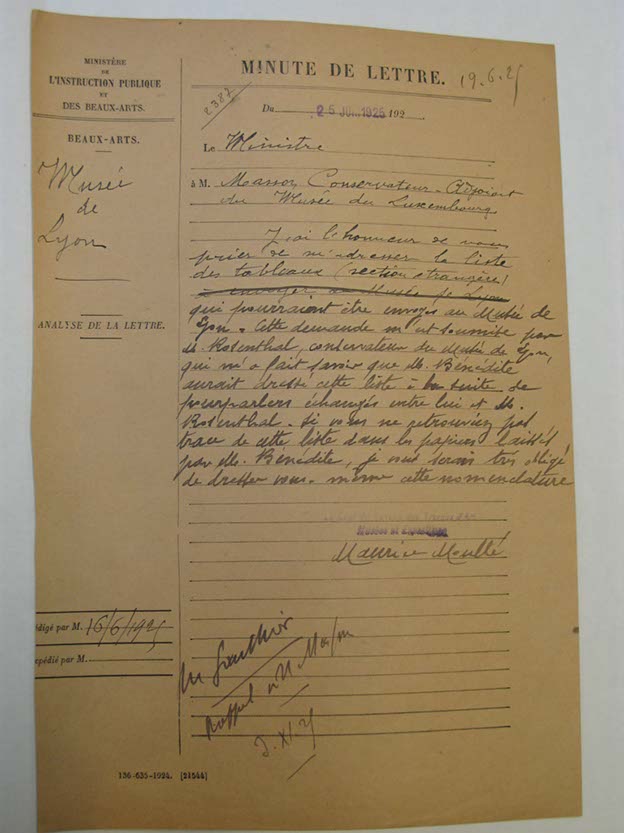 MINISTÈRE
DE
L'INSTRUCTION PUBLIQUE
ET
DES BEAUX-ARTS.
BEAUX-ARTS.
Musée
de
Lyon
ANALYSE DE LA LETTRE.
édigé par M. 16/6/1925
xpédié par M.
136-635-1924. [21544]
MINUTE DE LETTRE.
19.6.25
2387
Du 25 JUI 1925 192
Le Ministre
à M. Masson Conservateur-Adjoint
du Musée du Luxembourg
J'ai l'honneur de vous
prier de m'adresser la liste
des tableaux (section étrangère)
à envoyer au Musée de Lyon
qui pourraient être envoyés au Musée de
Lyon. Cette demande m'est soumise par
M. Rosenthal, conservateur du Musée de Lyon,
qui m'a fait savoir que M. Bénédite
aurait dressé cette liste à la suite de
pourparlers échangés entre lui et M.
Rosenthal. Si vous ne retrouviez pas
trace de cette liste dans les papiers laissés
par M. Bénédite, je vous serais très obligé
de dresser vous-même cette nomenclature
Musées et Expositions
Maurice Moullé
Rappel à M. Masson
3.XI.25